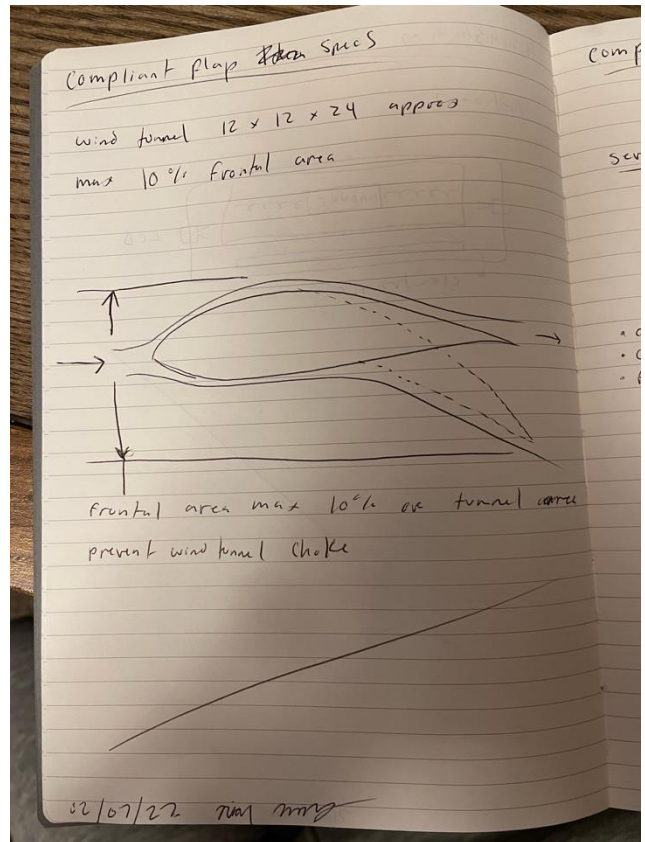 Compliant flap specs
wind tunnel 12 x 12 x 24 approx
max 10% frontal area
frontal area max 10% of tunnel
prevent wind tunnel choke
02/07/22
comp